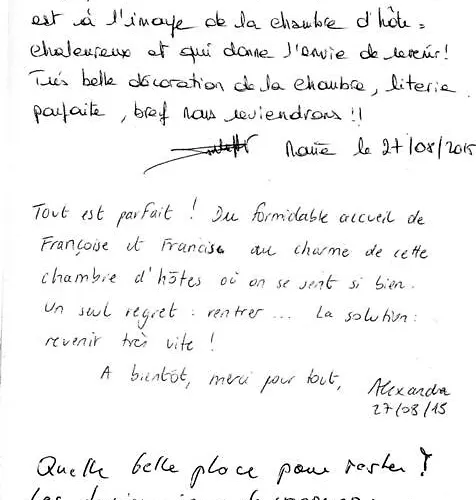 est à l'image de la chambre d'hôte :
chaleureux et qui donne l'envie de revenir !
Très belle décoration de la chambre, literie
parfaite, bref nous reviendrons !!
le 27/08/2015
Tout est parfait ! Du formidable accueil de
Françoise et Francise au charme de cette
chambre d'hôtes où on se sent si bien.
Un seul regret : rentrer ... La solution :
revenir très vite !
A bientôt, merci pour tout,
Alexandra
27/08/15
Quelle belle place pour rester !